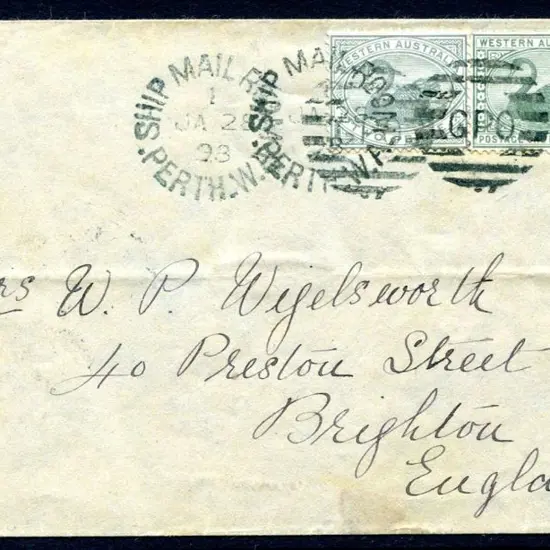 WESTERN AUSTRAL
WESTERN AU
2
2
POSTAGE
SHIP MAIL R
1
JA 28
93
PERTH.W.
SHIP MAIL R
PERTH W.A
GPO
rs W. P. Wigelsworth
40 Preston Street
Brighton
Engla